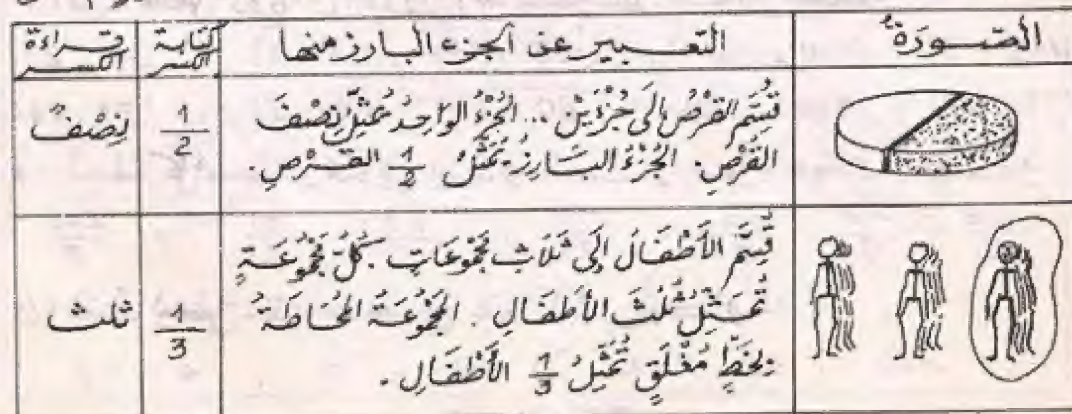 الصّورَةُ
التعبير عن الجزء البارز منها
كتابة الكسر
قراءة الكسر
قُسِّمَ القرْصُ إلَى جُزْءَيْنْ... الجُزْءُ الوَاحِدُ يُمَثِّلُ نِصْفَ
القُرْصِ. الجُزْءُ البَارِزُ يُمَثِّلُ 1/2 القُرْصِ.
1/2
نِصْفٌ
قُسِّمَ الأَطْفَالُ إلَى ثَلَاثِ مَجْمُوعَاتٍ. كُلُّ مَجْمُوعَةٍ
تُمَثِّلُ ثُلُثَ الأَطْفَالِ. المَجْمُوعَةُ المُحَاطَةُ
بِخَطٍّ مُغْلَقٍ تُمَثِّلُ 1/3 الأَطْفَالِ.
1/3
ثلث